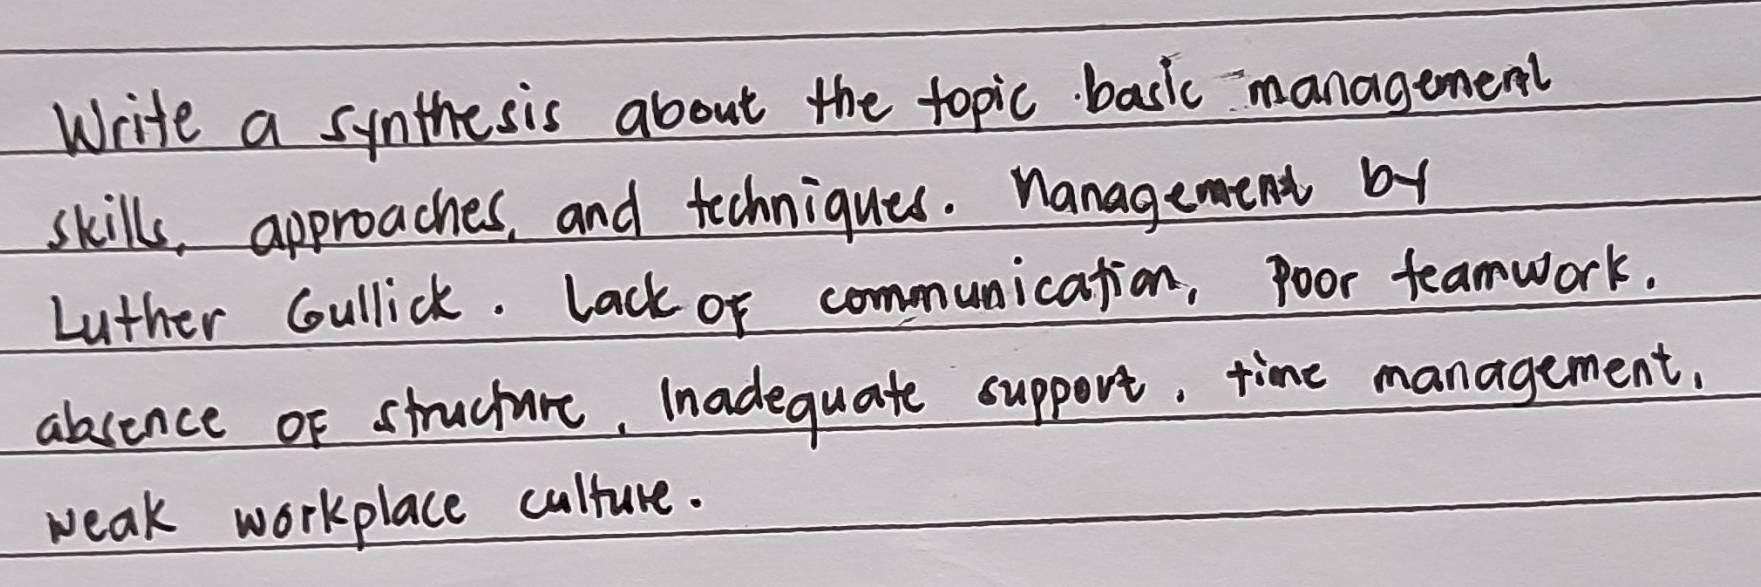 Write a synthesis about the topic basic management
skills, approaches, and techniques. Management by
Luther Gullick. Lack of communication, Poor teamwork.
absence of structure, Inadequate support, time management,
weak workplace culture.